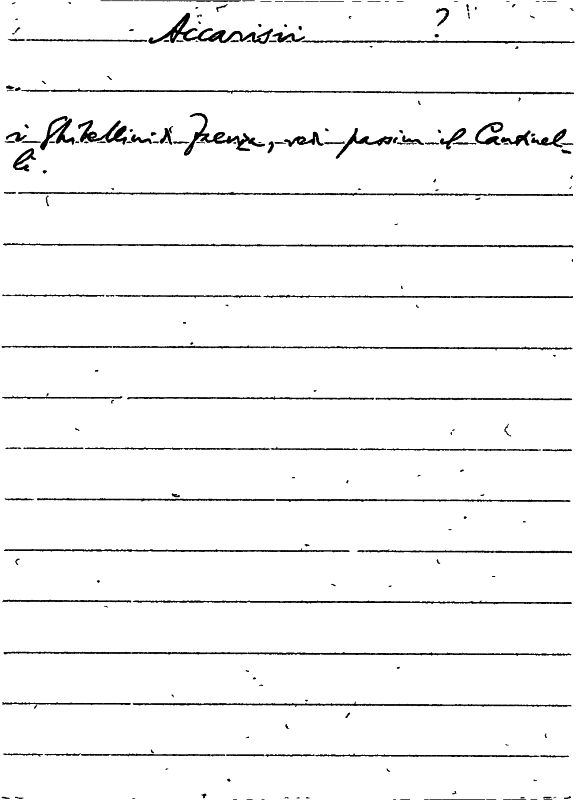 Accarisii ?
i Ghibellini di Faenza, vedi passim il Cantinel-
li.